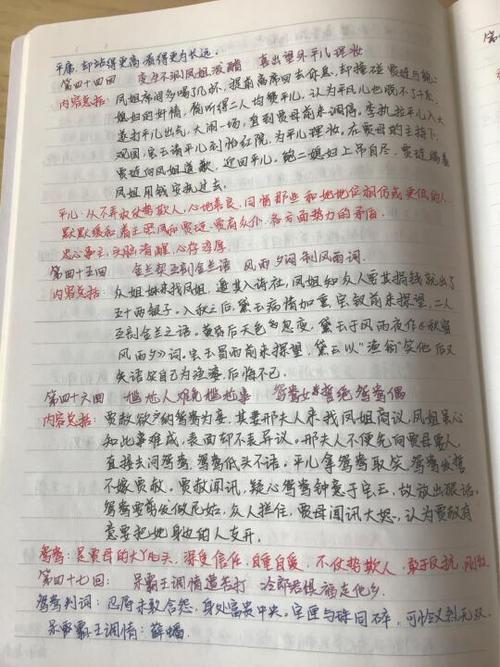 平庸,却站得更高看得更为长远。
第四十四回 变生不测凤姐泼醋 喜出望外平儿理妆
内容总括:凤姐席间多喝了几杯,提前离席回去休息,却撞破贾琏与鲍二
媳妇的奸情,偷听得二人均赞平儿,认为平儿也脱不了干系,
遂打平儿出气,大闹一场,直到贾母前来调停。李纨拉平儿入大
观园,宝玉请平儿到怡红院,为平儿理妆。在贾母的主持下,
贾琏向凤姐道歉,迎回平儿。鲍二媳妇上吊自尽,贾琏瞒着
凤姐用钱安抚过去。
平儿:从不弄权仗势欺人,心地善良,同情那些和她地位相仿或更低的人
默默缓和着王熙凤和贾琏、贾府众仆、各方面势力的矛盾
忠心事主,头脑清醒,心存
第四十五回 金兰契互剖金兰语 风雨夕闷制风雨词
内容总括:众姐妹来找凤姐,邀其入诗社,凤姐知众人需其捐钱就出了
五十两银子。入秋之后,黛玉病情加重,宝钗前来探望,二人
互剖金兰之语。黄昏后天色忽变,黛玉于风雨夜作《秋窗
风雨夕》词。宝玉冒雨前来探望,黛玉以“渔翁”笑他后又
失语安自己为渔婆,后悔不已。
第四十六回 尴尬人难免尴尬事 鸳鸯女誓绝鸳鸯偶
内容总括:贾赦欲纳鸳鸯为妾,其妻邢夫人来找凤姐商议,凤姐虽心
知此事难成,表面却不表异议。邢夫人不便先向贾母要人,
直接去问鸳鸯,鸳鸯低头不语。平儿拿鸳鸯取笑,鸳鸯发誓
不嫁贾赦。贾赦闻讯,疑心鸳鸯钟意于宝玉,故放出狠话,
鸳鸯要剪发做尼姑,众人拦住,贾母闻讯大怒,认为贾赦有
意要把她身边的人支开。
鸳鸯:是贾母的大丫头,深受信任,自重自爱,不仗势欺人,敢于反抗,刚烈
第四十七回: 呆霸王调情遭苦打 冷郎君惧祸走他乡
鸳鸯判词:身处富贵中央。宝匣与珠同碎,可怜又烈无双
呆霸王调情:薛蟠